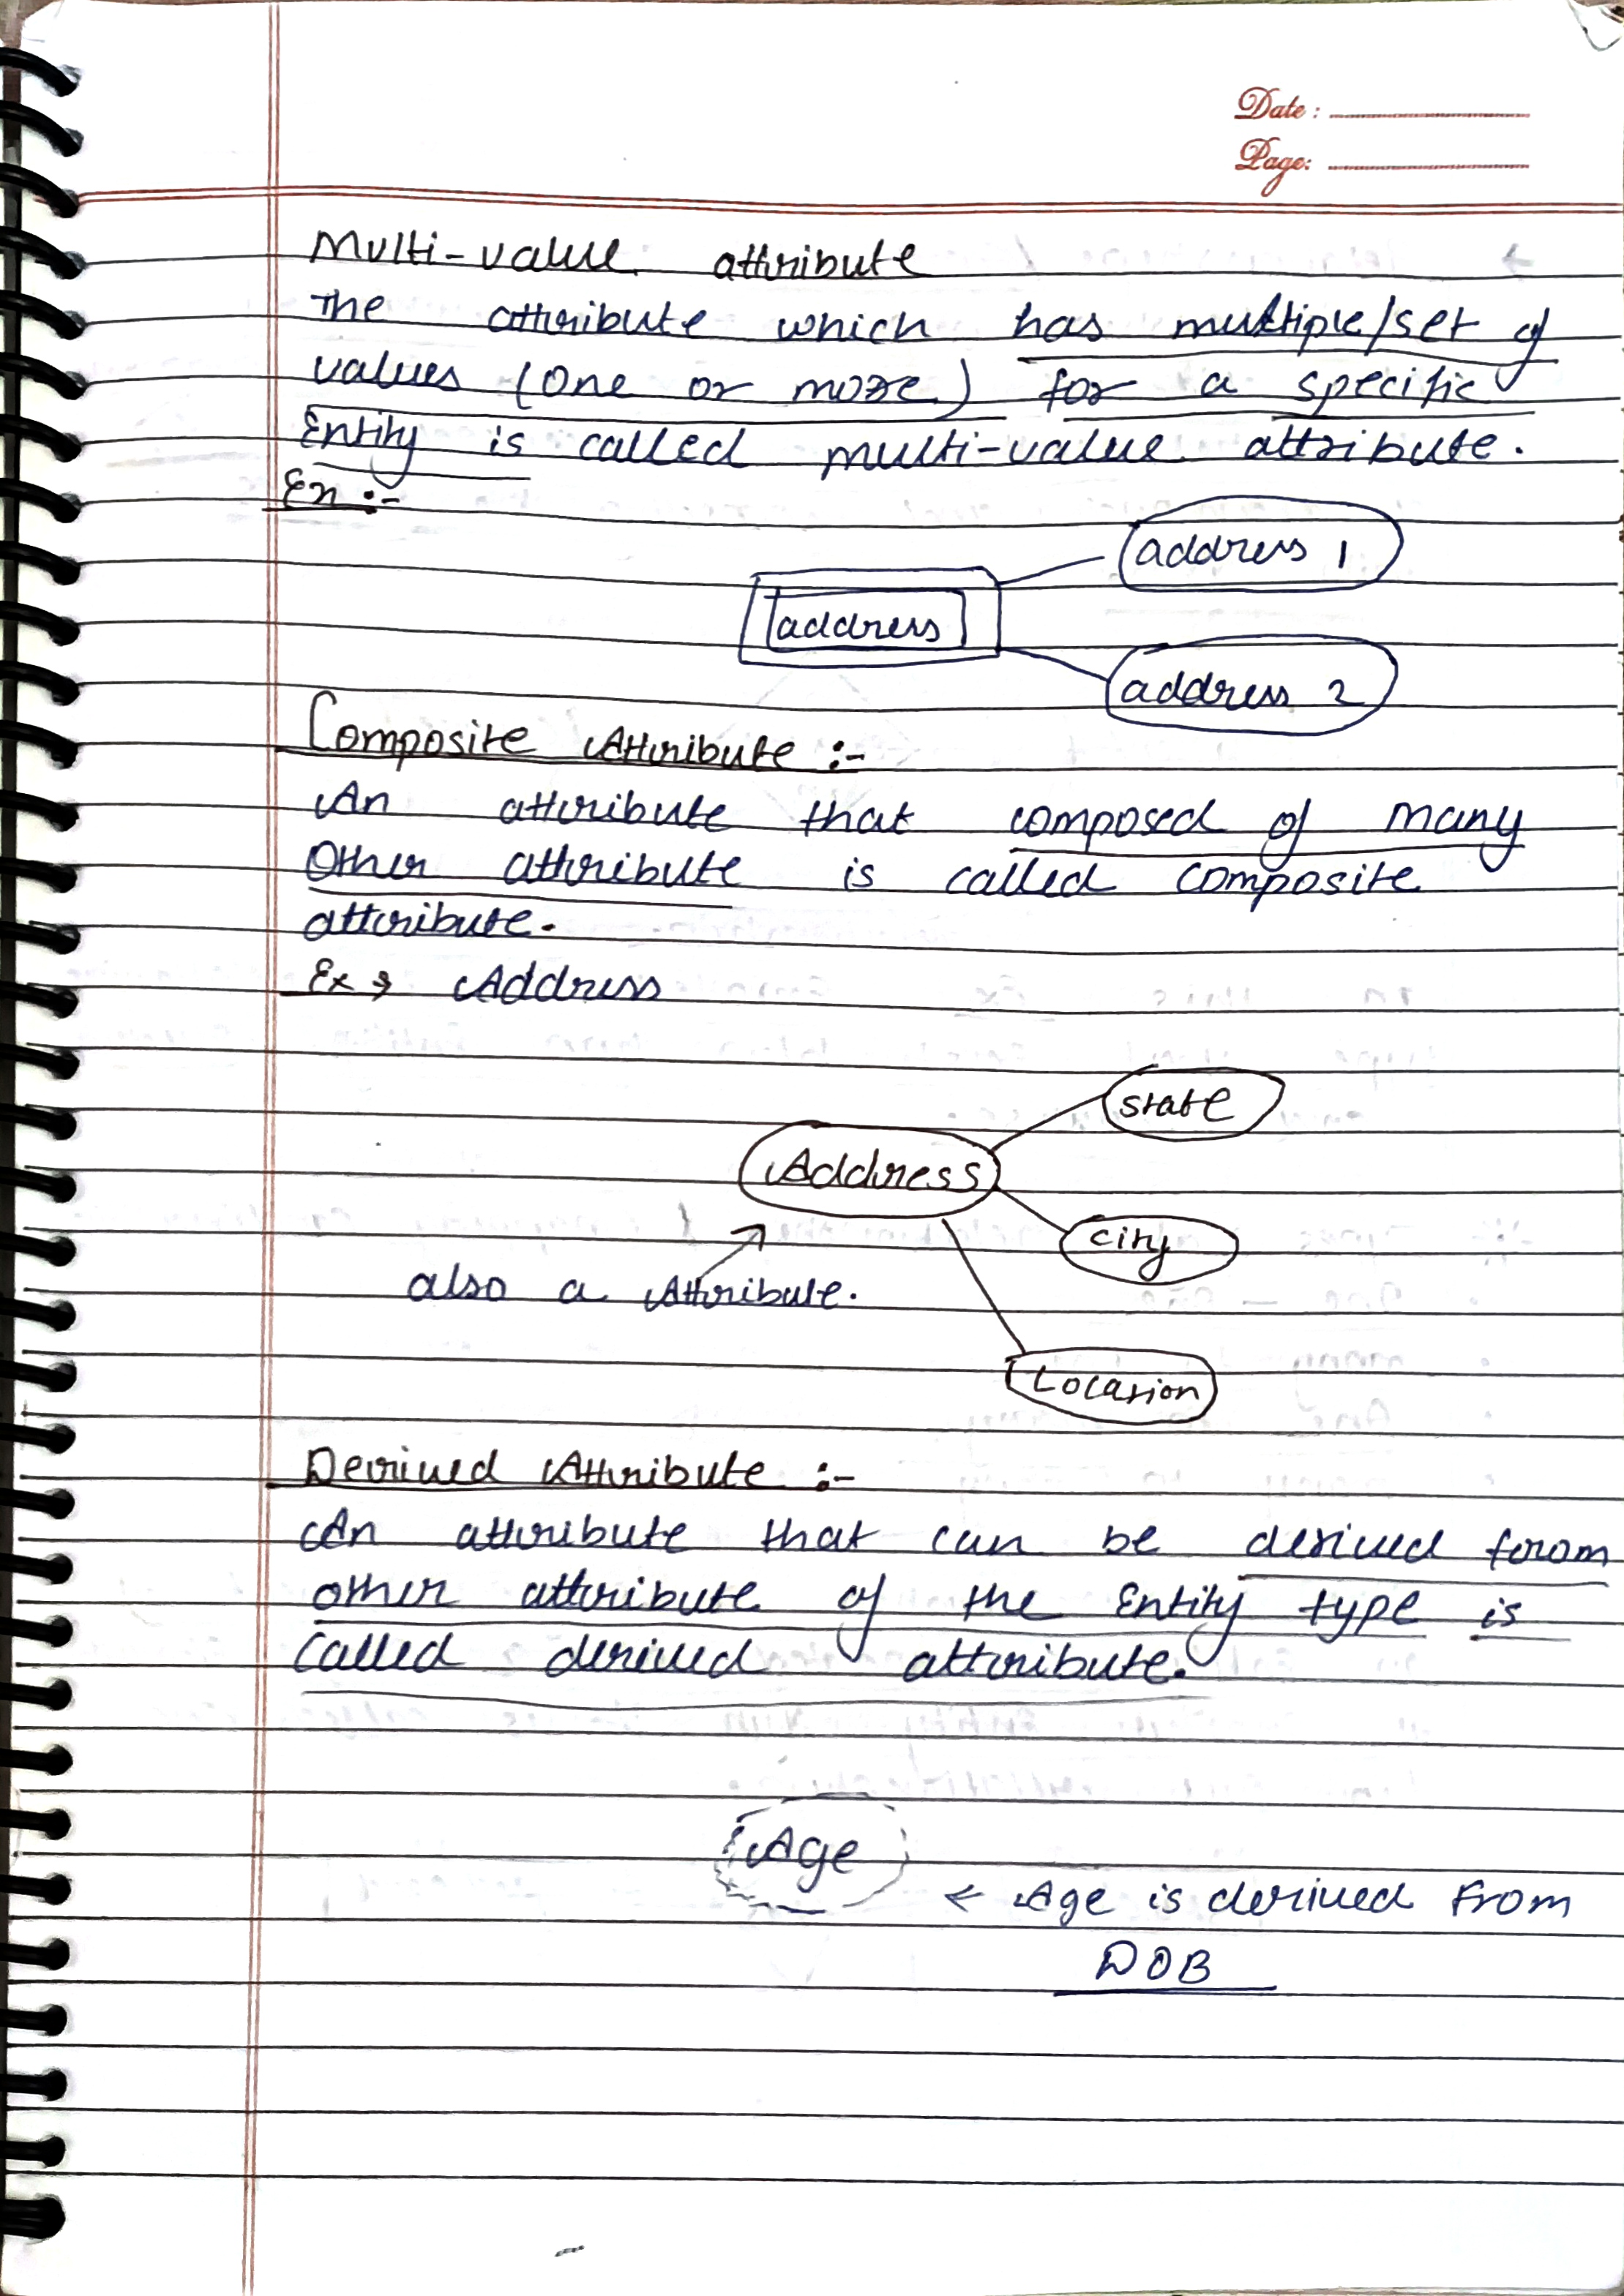 Date :
Page:
Multi-value attribute
The attribute which has multiple/set of
values (one or more) for a specific
Entity is called multi-value attribute.
Ex :-
address 1
address
address 2
Composite Attribute :-
An attribute that composed of many
other attribute is called composite
attribute.
Ex → Address
state
Address
city
also a Attribute.
Location
Derived Attribute :-
An attribute that can be derived from
other attribute of the Entity type is
called derived attribute.
Age
← Age is derived from
DOB